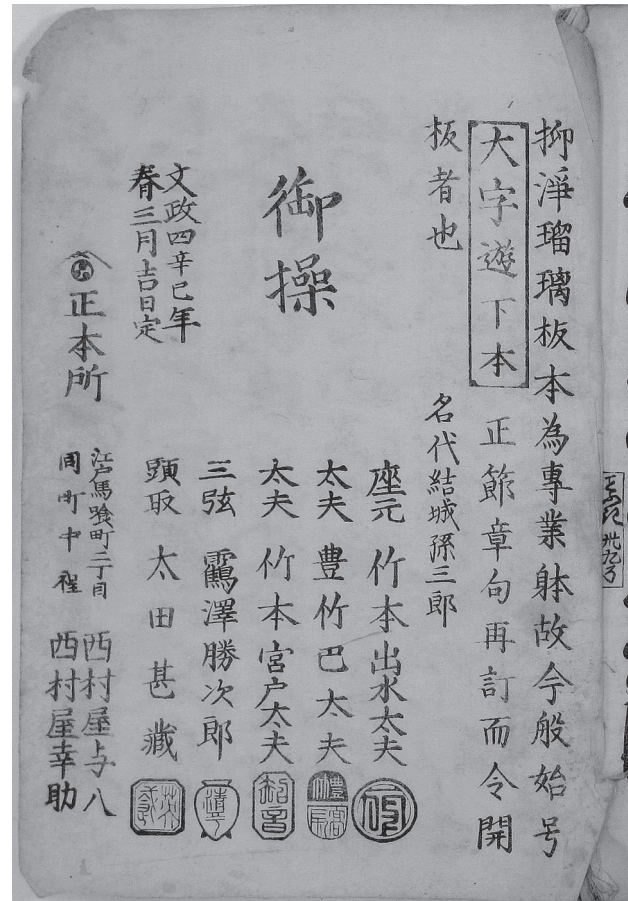 抑淨瑠璃板本為專業躰故今般始号
大字遊下本 正節章句再訂而令開
板者也
名代結城孫三郎
御操
座元 竹本出水太夫
太夫 豊竹巴太夫
太夫 竹本宮戸太夫
三弦 鶴澤勝次郎
頭取 太田甚藏
文政四辛巳年
春三月吉日定
正本所
江戸馬喰町二丁目 西村屋与八
同町中程 西村屋幸助
知音